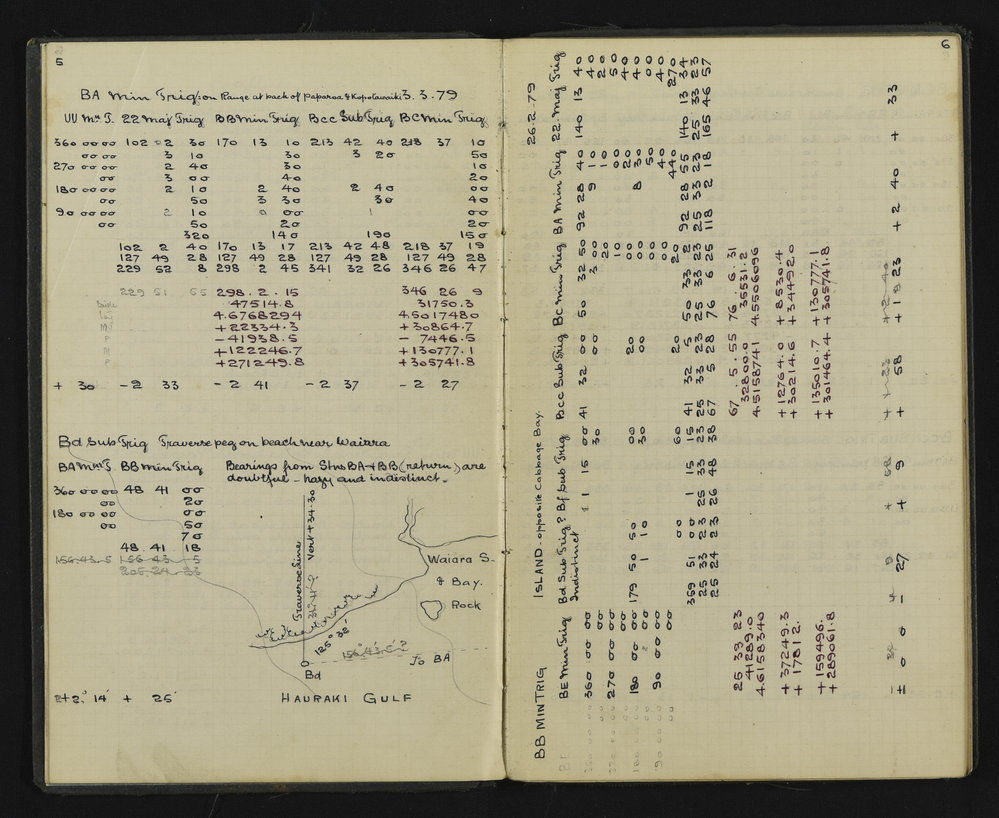 5
BA Min Trig: on Range at back of Paparoa & Kopotauaiki 3.3.79
UU Mn T. 22 Maj Trig BB Min Trig Bcc Sub Trig BC Min Trig
360 00 00 102 2 30 170 13 10 213 42 40 218 37 10
00 00 3 10 30 3 20 50
270 00 00 2 40 30 10
00 3 00 40 20
180 00 00 2 10 2 40 2 40 00
00 50 3 30 30 40
90 00 00 2 10 0 00 1 00
00 50 20 20
320 140 190 150
102 2 40 170 13 17 213 42 48 218 37 19
127 49 28 127 49 28 127 49 28 127 49 28
229 52 8 298 2 45 341 32 26 346 26 47
229 51 55 298.2.15 346 26 9
47514.8 31750.3
4.6768294 4.5017480
+22334.3 +30864.7
-41938.5 - 7446.5
+122246.7 +130777.1
+271249.8 +305741.8
+ 30 -2 33 -2 41 -2 37 -2 27
Bd Sub Trig Traverse peg on beach near Waiara
BA Mn T. BB Min Trig
Bearings from Stns BA & BB (return) are
doubtful - hazy and indistinct.
360 00 00 48 41 00
00 20
180 00 00 00
00 50
70
48.41 18
156.43.5 156 43 5
205.24.23
Traverse line
Vert + 34.30
Waiara S.
& Bay.
Rock
125° 32'
156°43'.5"?
To BA
Bd
+2° 14' + 25'
HAURAKI GULF
6
BB MIN TRIG ISLAND - opposite Cabbage Bay. 26.2.79
BE Min Trig Bd Sub Trig? Bf Sub Trig Bcc Sub Trig BC Min Trig BA Min Trig 22. Maj Trig
Indistinct
360 00 00 1 15 00 41 32 00 50 32 50 92 28 40 140 13 40
00 30 00 3 00 9 10 40
270 00 00 20 10 20
00 00 10 00 50
00 179 50 50 00 20 00 20 40
180 00 00 1 10 30 00 00 8 30 40
00 00 50 00
90 00 00 00 40 40
00 00 60 20 20 440 270
359 51 00 1 15 15 41 32 5 50 33 22 92 28 55 140 13 34
25 33 23 25 33 23 25 33 23 25 33 23 25 33 23 25 33 23
25 24 23 26 48 38 67 5 28 76 6 25 118 2 18 165 46 57
25 39 23 67.5.55 76.6.31
41289.0 32800.0 35531.2
4.6158340 4.5158741 4.5506096
+37249.3 +12764.0 +8530.4
+17812. +30214.6 +34492.0
+159496. +135010.7 +130777.1
+289061.8 +301464.4 +305741.8
± 0 0 - 27 + 9 + 58 + 1 23 + 2 40 + 33